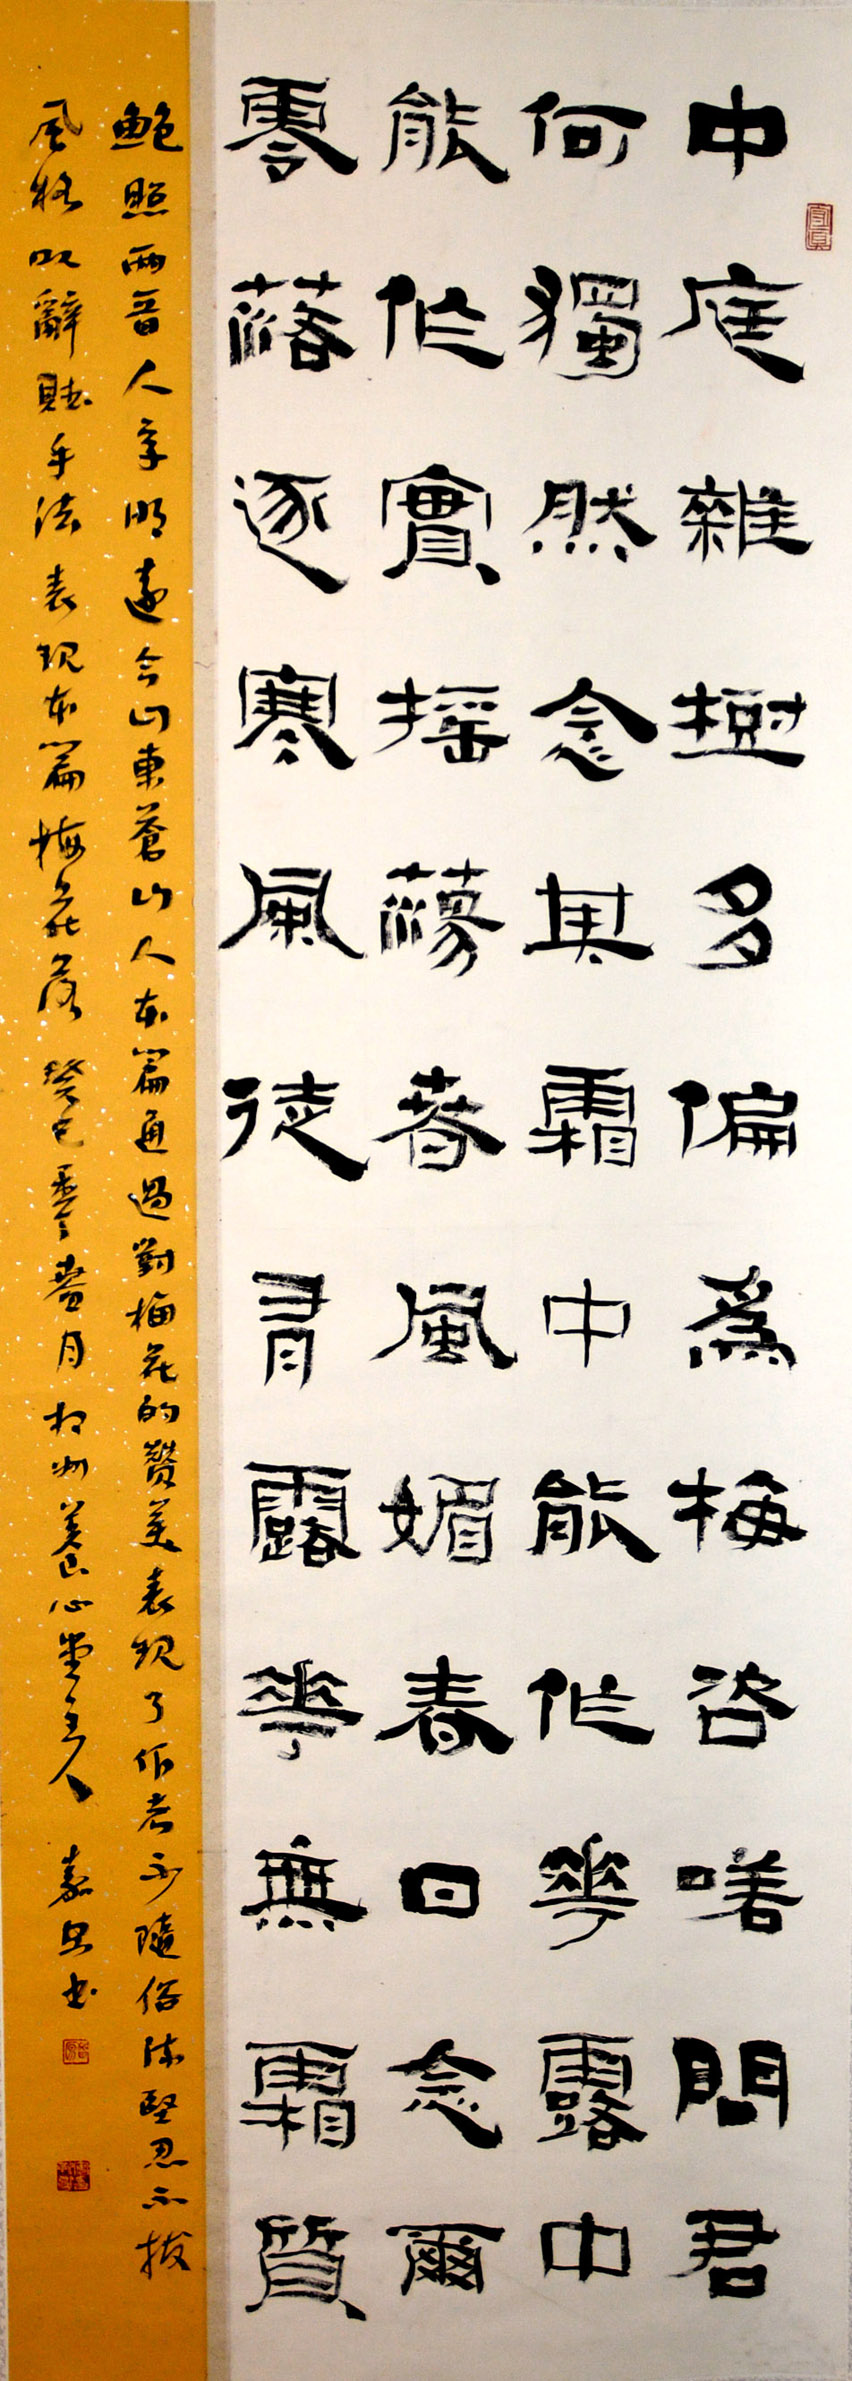 中庭雜樹多偏爲梅咨嗟問君
何獨然念其霜中能作華露中
能作實搖蕩春風媚春日念爾
零落逐寒風徒有露華無霜質
鮑照兩晉人字明遠今山東蒼山人本篇通過對梅花的贊美表現了作者不隨俗流堅忍不拔
風格以辭賦手法表現本篇梅花落 癸巳 月 州養心堂主人 嘉 書